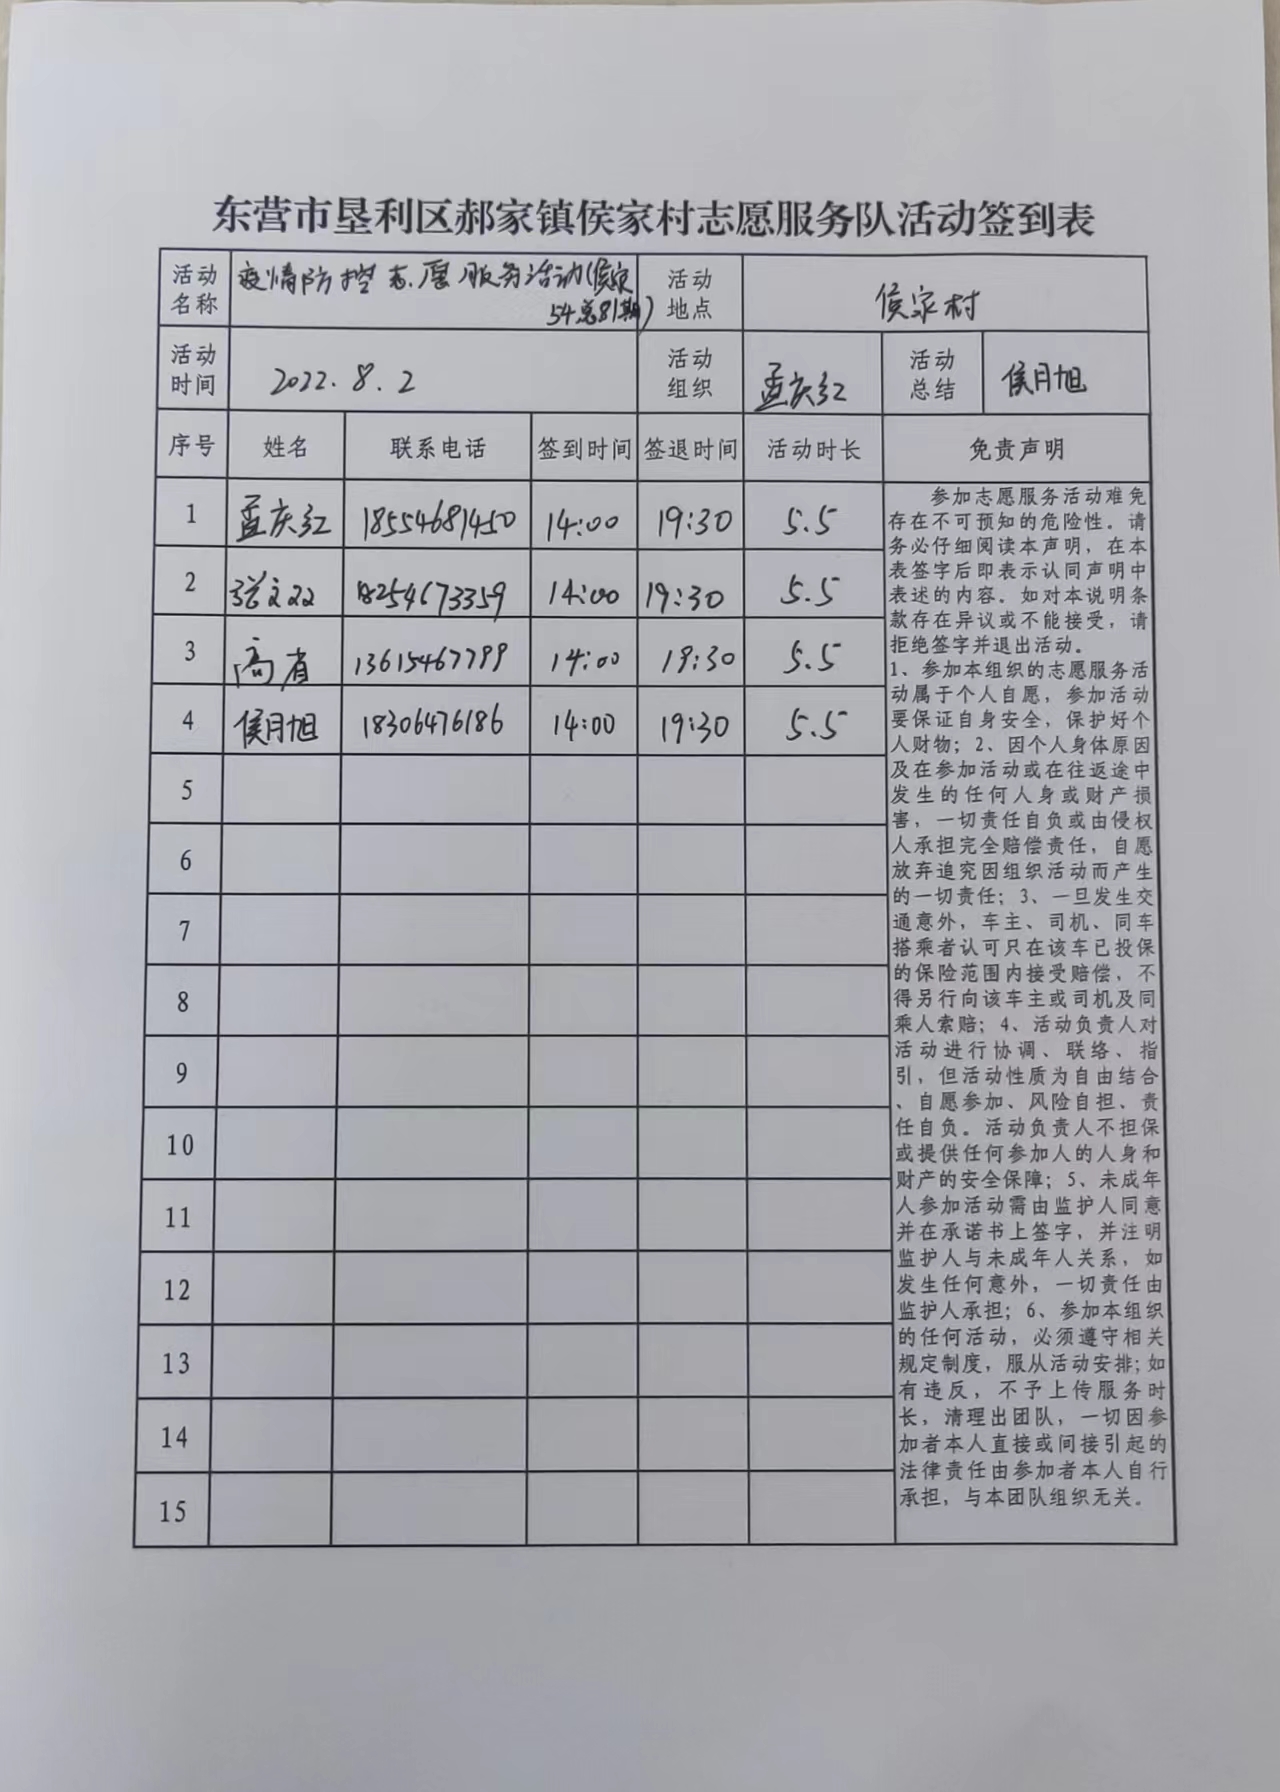 东营市垦利区郝家镇侯家村志愿服务队活动签到表
活动名称 疫情防控志愿服务活动(侯家54总81期) 活动地点 侯家村
活动时间 2022.8.2 活动组织 孟庆红 活动总结 侯月旭
序号 姓名 联系电话 签到时间 签退时间 活动时长 免责声明
1 孟庆红 18554681450 14:00 19:30 5.5
2 张文双 18254673359 14:00 19:30 5.5
3 高省 13615467799 14:00 19:30 5.5
4 侯月旭 18306476186 14:00 19:30 5.5
5
6
7
8
9
10
11
12
13
14
15
参加志愿服务活动难免
存在不可预知的危险性。请
务必仔细阅读本声明，在本
表签字后即表示认同声明中
表述的内容。如对本说明条
款存在异议或不能接受，请
拒绝签字并退出活动。
1、参加本组织的志愿服务活
动属于个人自愿，参加活动
要保证自身安全，保护好个
人财物；2、因个人身体原因
及在参加活动或在往返途中
发生的任何人身或财产损
害，一切责任自负或由侵权
人承担完全赔偿责任，自愿
放弃追究因组织活动而产生
的一切责任；3、一旦发生交
通意外，车主、司机、同车
搭乘者认可只在该车已投保
的保险范围内接受赔偿，不
得另行向该车主或司机及同
乘人索赔；4、活动负责人对
活动进行协调、联络、指
引，但活动性质为自由结合
、自愿参加、风险自担、责
任自负。活动负责人不担保
或提供任何参加人的人身和
财产的安全保障；5、未成年
人参加活动需由监护人同意
并在承诺书上签字，并注明
监护人与未成年人关系，如
发生任何意外，一切责任由
监护人承担；6、参加本组织
的任何活动，必须遵守相关
规定制度，服从活动安排；如
有违反，不予上传服务时
长，清理出团队，一切因参
加者本人直接或间接引起的
法律责任由参加者本人自行
承担，与本团队组织无关。